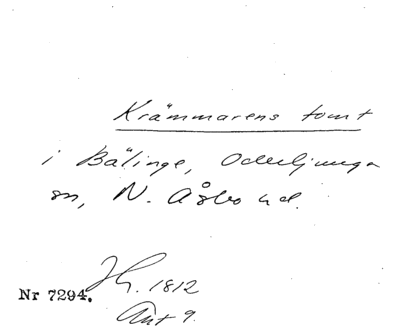 Krämmarens tomt
i Bälinge, Oderljunga
sn, N. Åsbo hd.
Nr 7294. Jh. 1812
Ant 9.